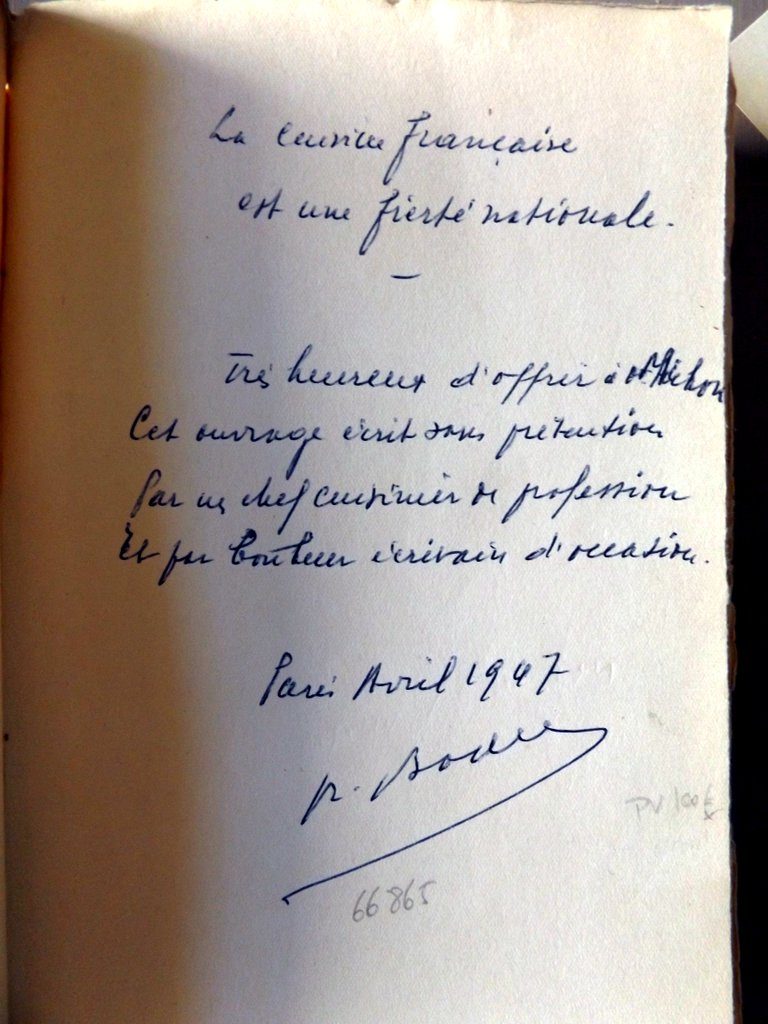 La cuisine française
est une fierté nationale.
—
Très heureux d'offrir à
Cet ouvrage écrit sans prétention
Par un chef cuisinier de profession
Et par bonheur écrivain d'occasion.
Paris Avril 1947
66865